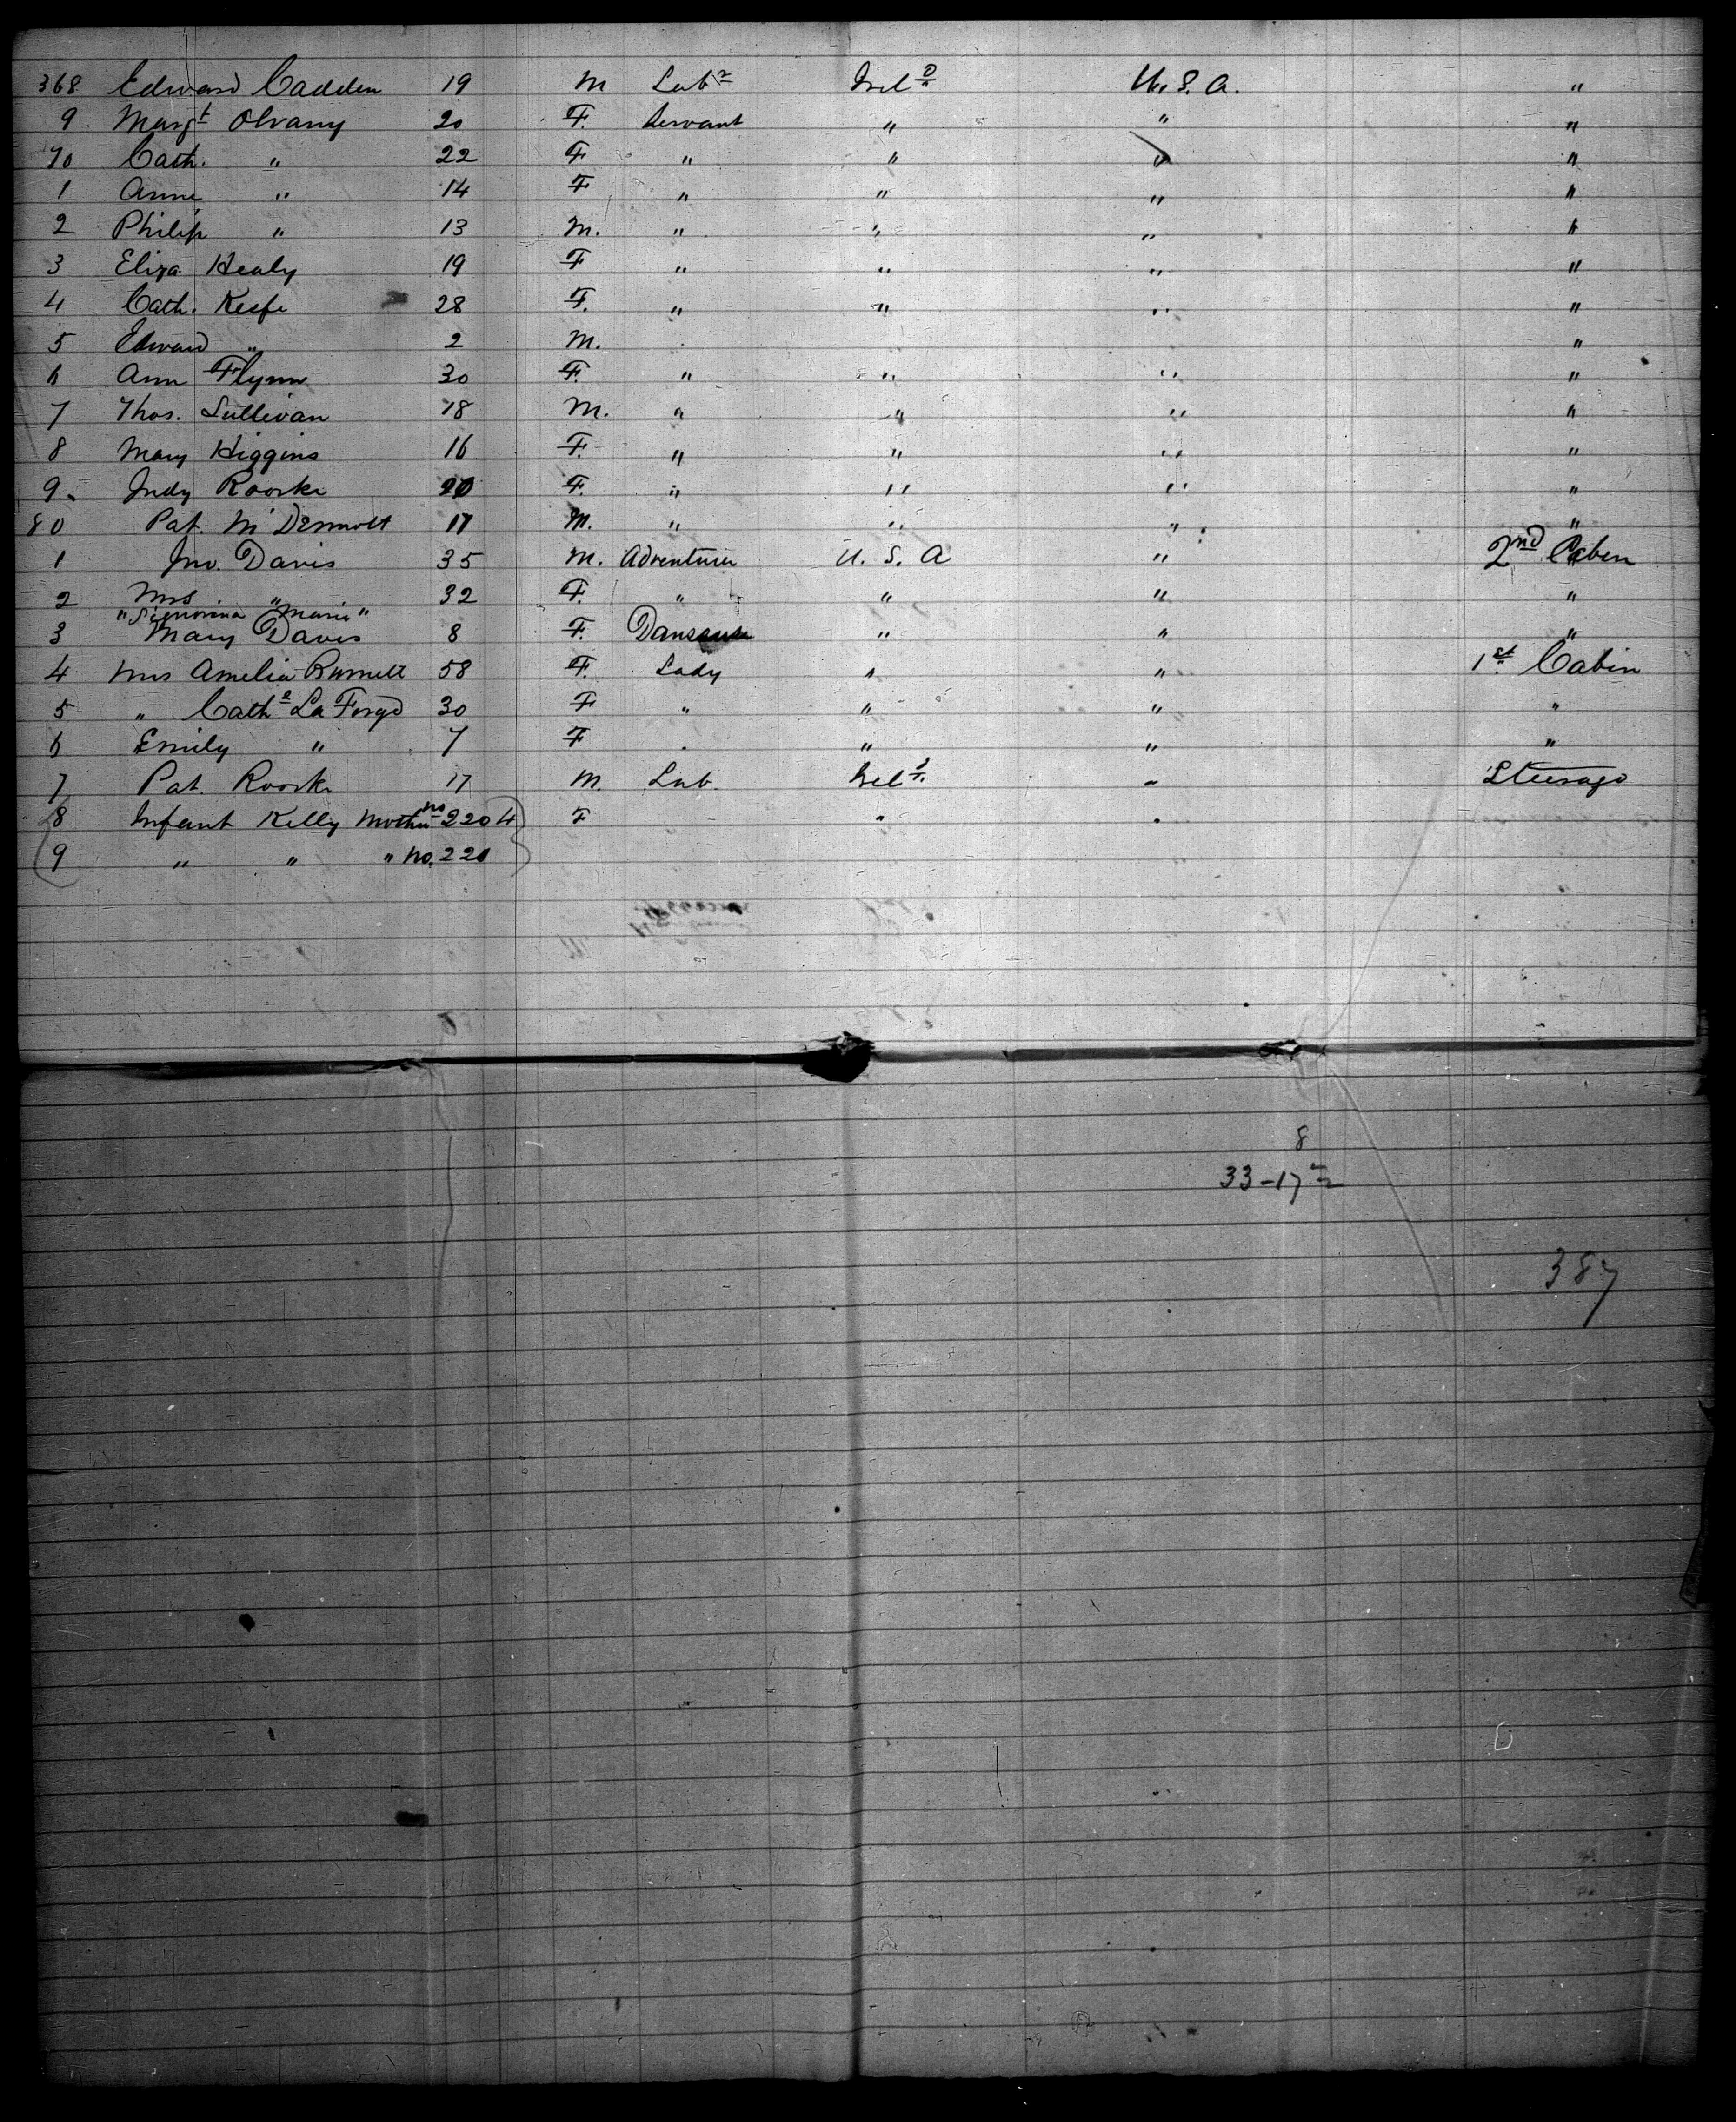 368 Edward Cadden 19 M Lab^r Irel^d U. S. A. "
9 Marg^t Olvany 20 F. Servant " " "
70 Cath. " 22 F " " " "
1 Anne " 14 F " " " "
2 Philip " 13 M. " " " "
3 Eliza Healy 19 F " " " "
4 Cath. Keefe 28 F. " " " "
5 Edward " 2 M. "
6 Ann Flynn 30 F. " " " "
7 Thos. Sullivan 18 M. " " " "
8 Mary Higgins 16 F. " " " "
9 Judy Roorke 20 F. " " " "
80 Pat. McDermott 17 M. " " " "
1 Jno. Davis 35 M. Adventurer U. S. A " 2nd Cabin
2 Mrs " 32 F. " " " "
"Signorina Marie"
3 Mary Davis 8 F. Danseuse " " "
4 Mrs Amelia Burnett 58 F. Lady " " 1st Cabin
5 " Cath^e La Forge 30 F " " " "
6 Emily " 7 F " " "
7 Pat. Roorke 17 M. Lab. Irel^d " Steerage
8 Infant Kelly Mother no 220 4 F " "
9 " " " No. 221
8
33-17
387